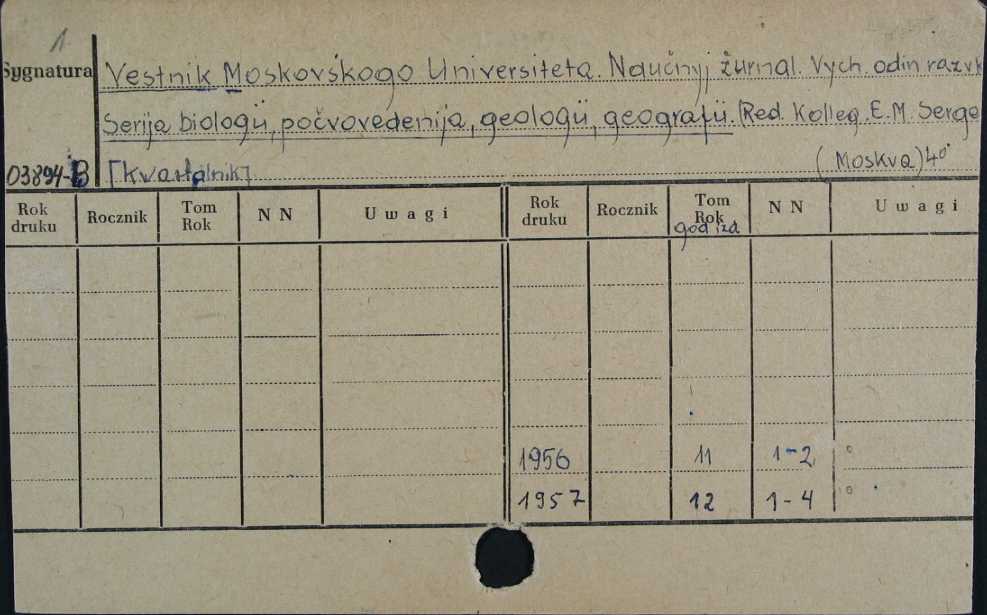 1
Sygnatura Vestnik Moskovskogo Universiteta. Naučnyj žurnal. Vych. odin raz v k
Serija biologii, počvovedenija, geologii, geografii. (Red. Kolleg. E.M. Serge
03894-B [kwartalnik] (Moskva) 4°
Rok druku Rocznik Tom Rok NN Uwagi Rok druku Rocznik Tom Rok NN Uwagi
god izd
1956 11 1-2
1957 12 1-4